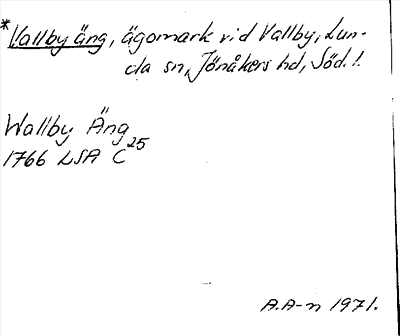 *Vallby äng, ägomark vid Vallby, Lun-
da sn, Jönåkers hd, Söd.!.
Wallby Äng
1766 LSA C25
A.A-n 1971.